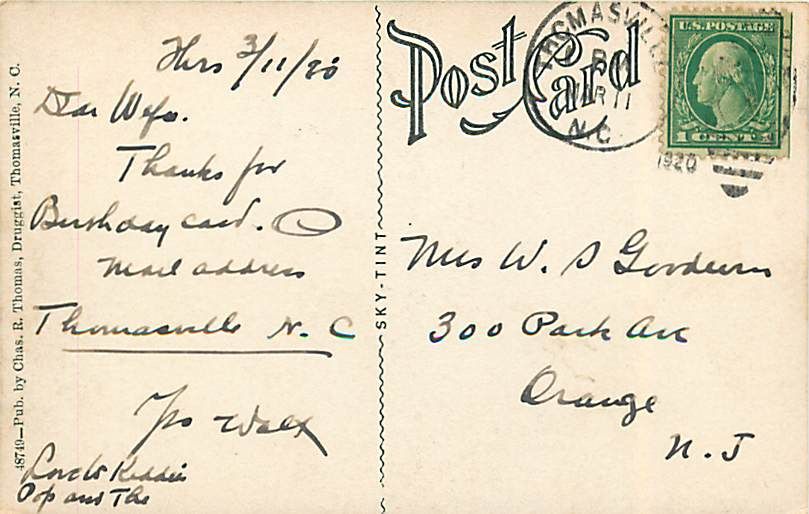 3/11/20
Dear Wife.
Thanks for
Birthday card.
Mail address
Thomasville N. C
Walt
Love to Kiddies
Pop and
48749—Pub. by Chas. R. Thomas, Druggist, Thomasville, N. C.
SKY-TINT
Post Card
THOMASVILLE
MAR 11
N.C.
1920
U.S. POSTAGE
1 CENT 1
Mrs W. S Goodwin
300 Park Ave
Orange
N. J